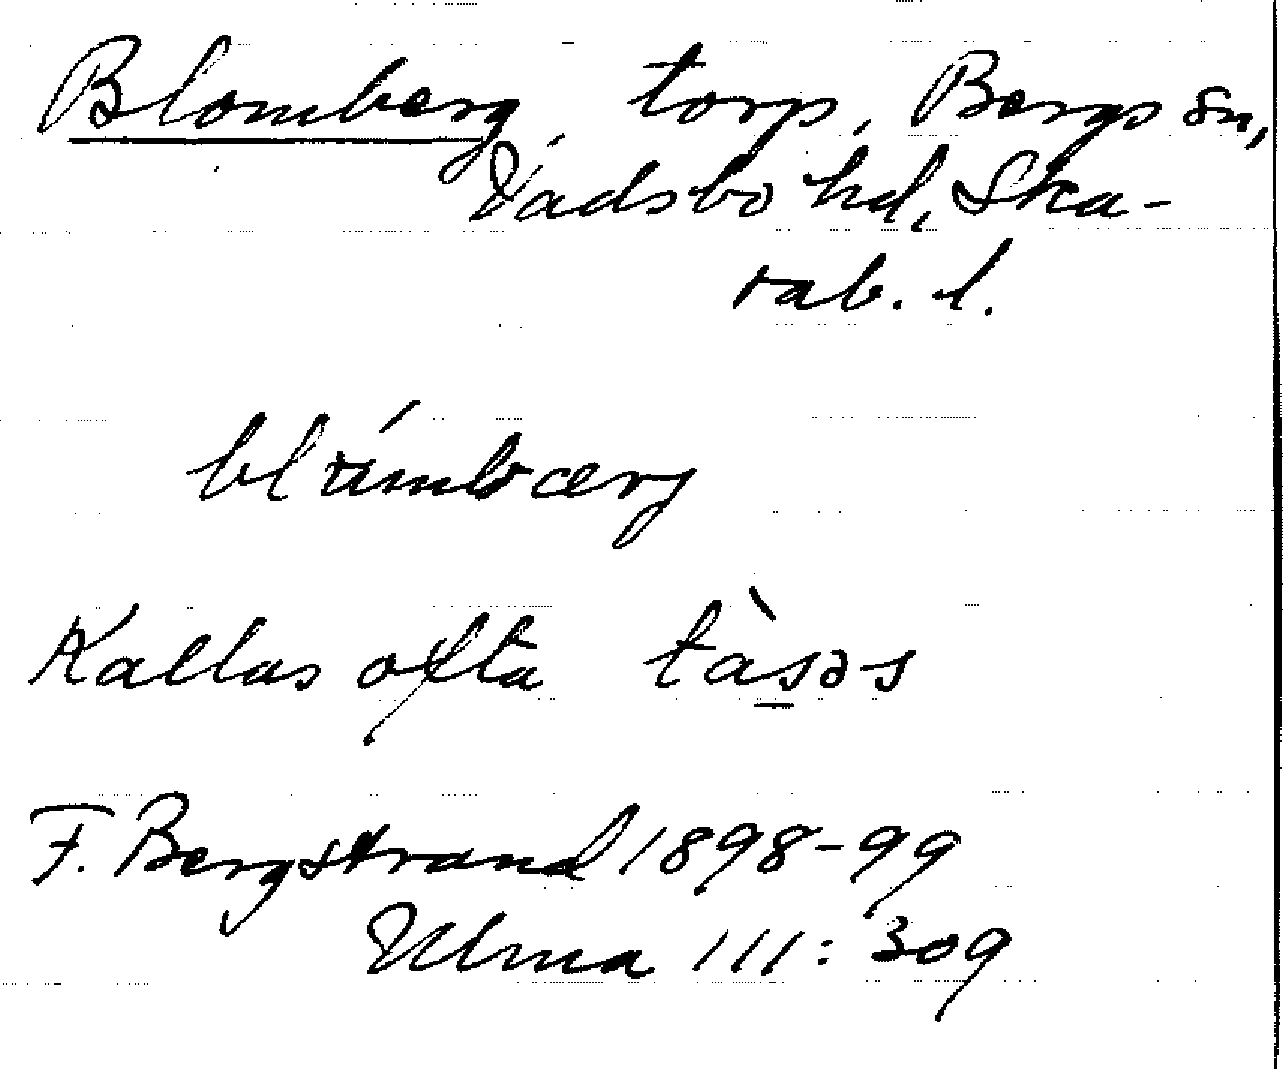 Blomberg, torp, Bergs sn,
Vadsbo hd, Ska-
rab. l.
Kallas ofta tàsəs
F. Bergstrand 1898-99
Ulma 111: 309